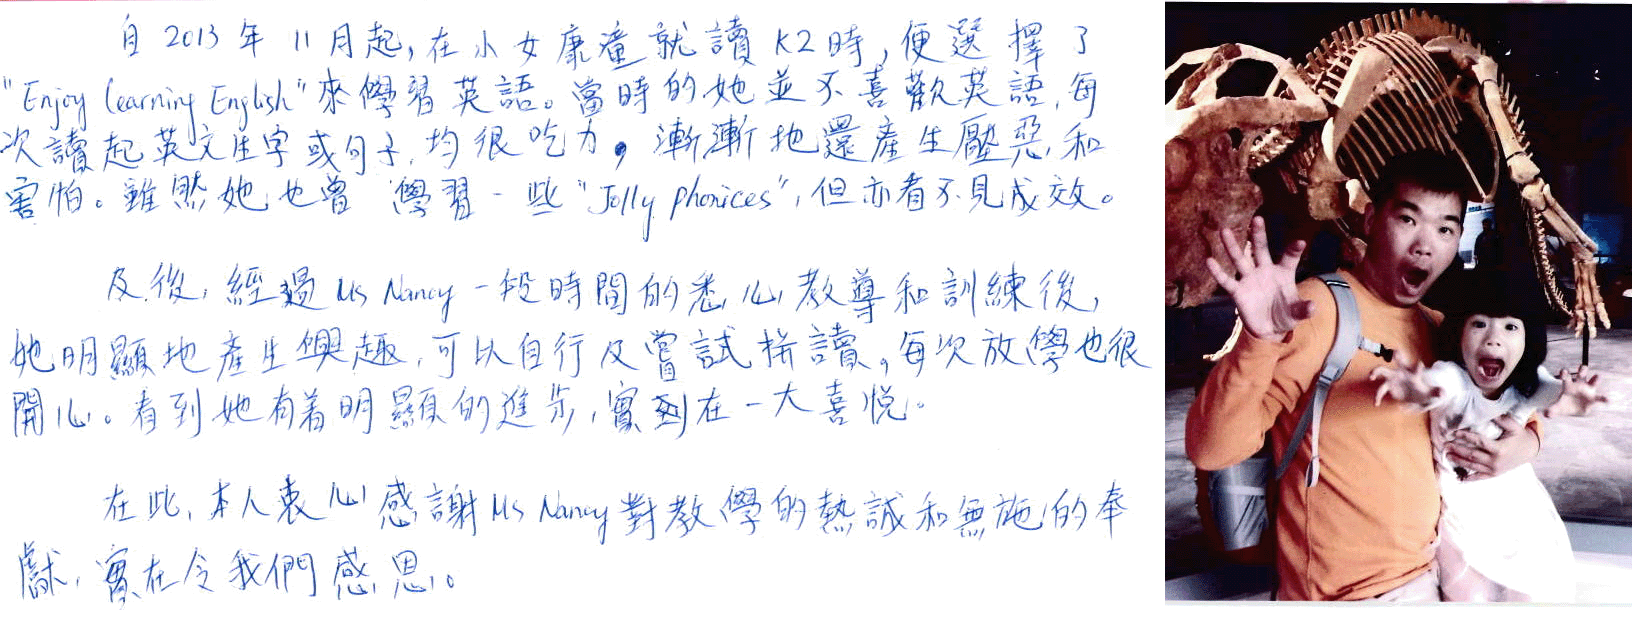 自2013年11月起,在小女康潼就讀K2時,便選擇了
"Enjoy learning English"來學習英語。當時的她並不喜歡英語,每
次讀起英文生字或句子,均很吃力,漸漸地還產生壓惡和
害怕。雖然她也曾學習一些"Jolly phonices",但亦看不見成效。
及後,經過Ms Nancy一段時間的悉心教導和訓練後,
她明顯地產生興趣,可以自行及嘗試拼讀,每次放學也很
開心。看到她有着明顯的進步,實在一大喜悅。
在此,本人衷心感謝Ms Nancy對教學的熱誠和無施的奉
獻,實在令我們感恩。